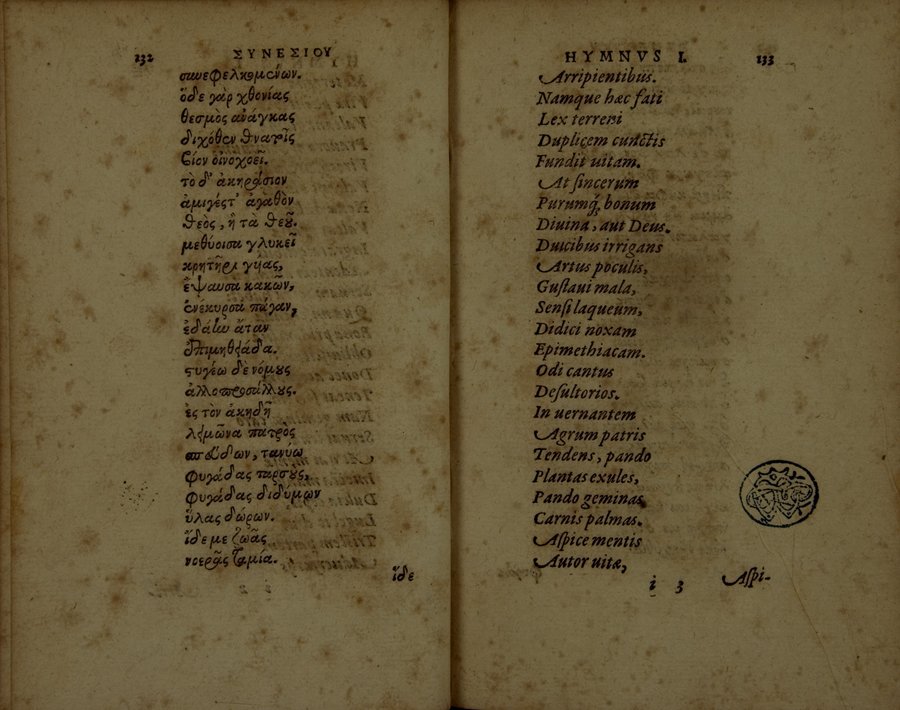 232 ΣΥΝΕΣΙΟΥ
συνεφελκομένων.
ὅδε γὰρ χθονίας
θεσμὸς ἀνάγκας
διχόθεν θνατοῖς
βίον οἰνοχοεῖ.
τὸ δ' ἀκηράσιον
ἀμιγές τ' ἀγαθὸν
θεὸς, ἢ τὰ θεοῦ.
μεθύοισα γλυκεῖ
κρητῆρι γύας,
ἔψαυσα κακῶν,
ἐνέκυρσα πάγαν,
ἐδάω ἄταν
ἐπιμηθειάδα.
στυγέω δὲ νόμους
ἀλλοπροσάλλους.
ἐς τὸν ἀκηδῆ
λειμῶνα πατρὸς
σπεύδων, τανύω
φυγάδας ταρσοὺς,
φυγάδας διδύμων
ὕλας δώρων.
ἴδε με ζωᾶς
νοερᾶς ταμία.
ἴδε
HYMNVS I. 133
Arripientibus.
Namque hæc fati
Lex terreni
Duplicem cunctis
Fundit uitam.
At sincerum
Purumq́; bonum
Diuina, aut Deus.
Dulcibus irrigans
Artus poculis,
Gustaui mala,
Sensi laqueum,
Didici noxam
Epimethiacam.
Odi cantus
Desultorios.
In uernantem
Agrum patris
Tendens, pando
Plantas exules,
Pando geminas
Carnis palmas.
Aspice mentis
Autor uitæ,
i 3 Aspi-